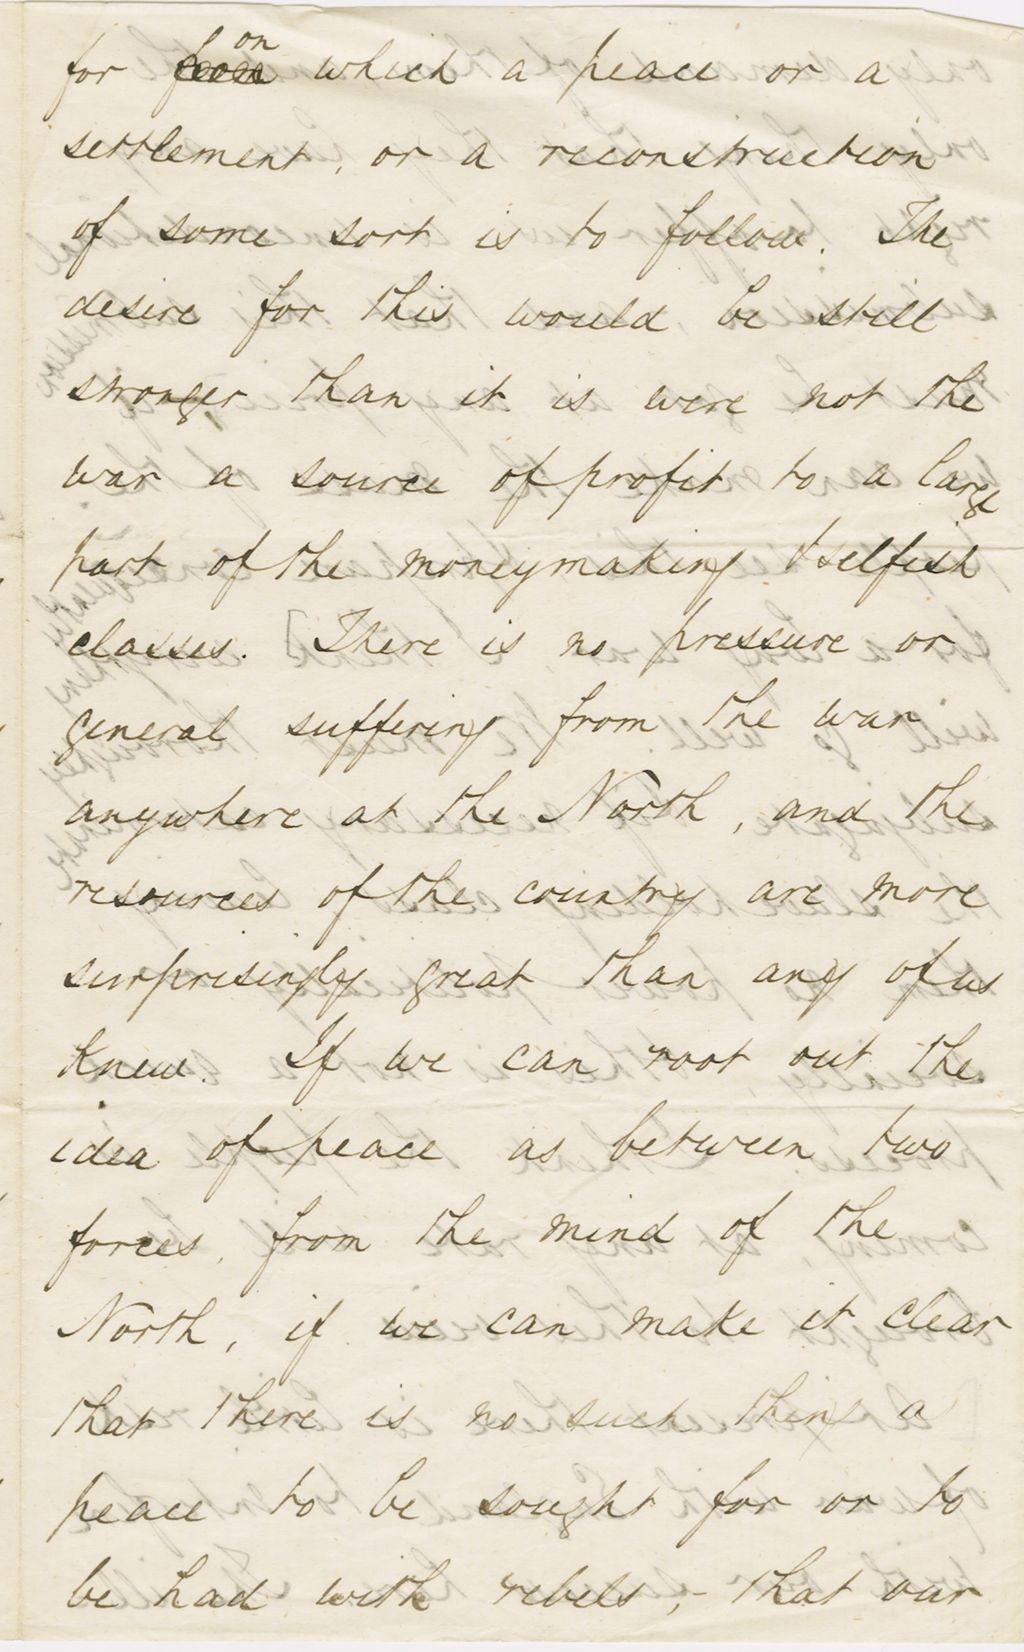 for on which a peace or a
settlement, or a reconstruction
of some sort is to follow. The
desire for this would be still
stronger than it is were not the
war a source of profit to a large
part of the moneymaking & selfish
classes. [There is no pressure or
general suffering from the war
anywhere at the North, and the
resources of the country are more
surprisingly great than any of us
knew. If we can root out the
idea of peace as between two
forces, from the mind of the
North, if we can make it clear
that there is no such thing a
peace to be sought for or to
be had with rebels;- that our